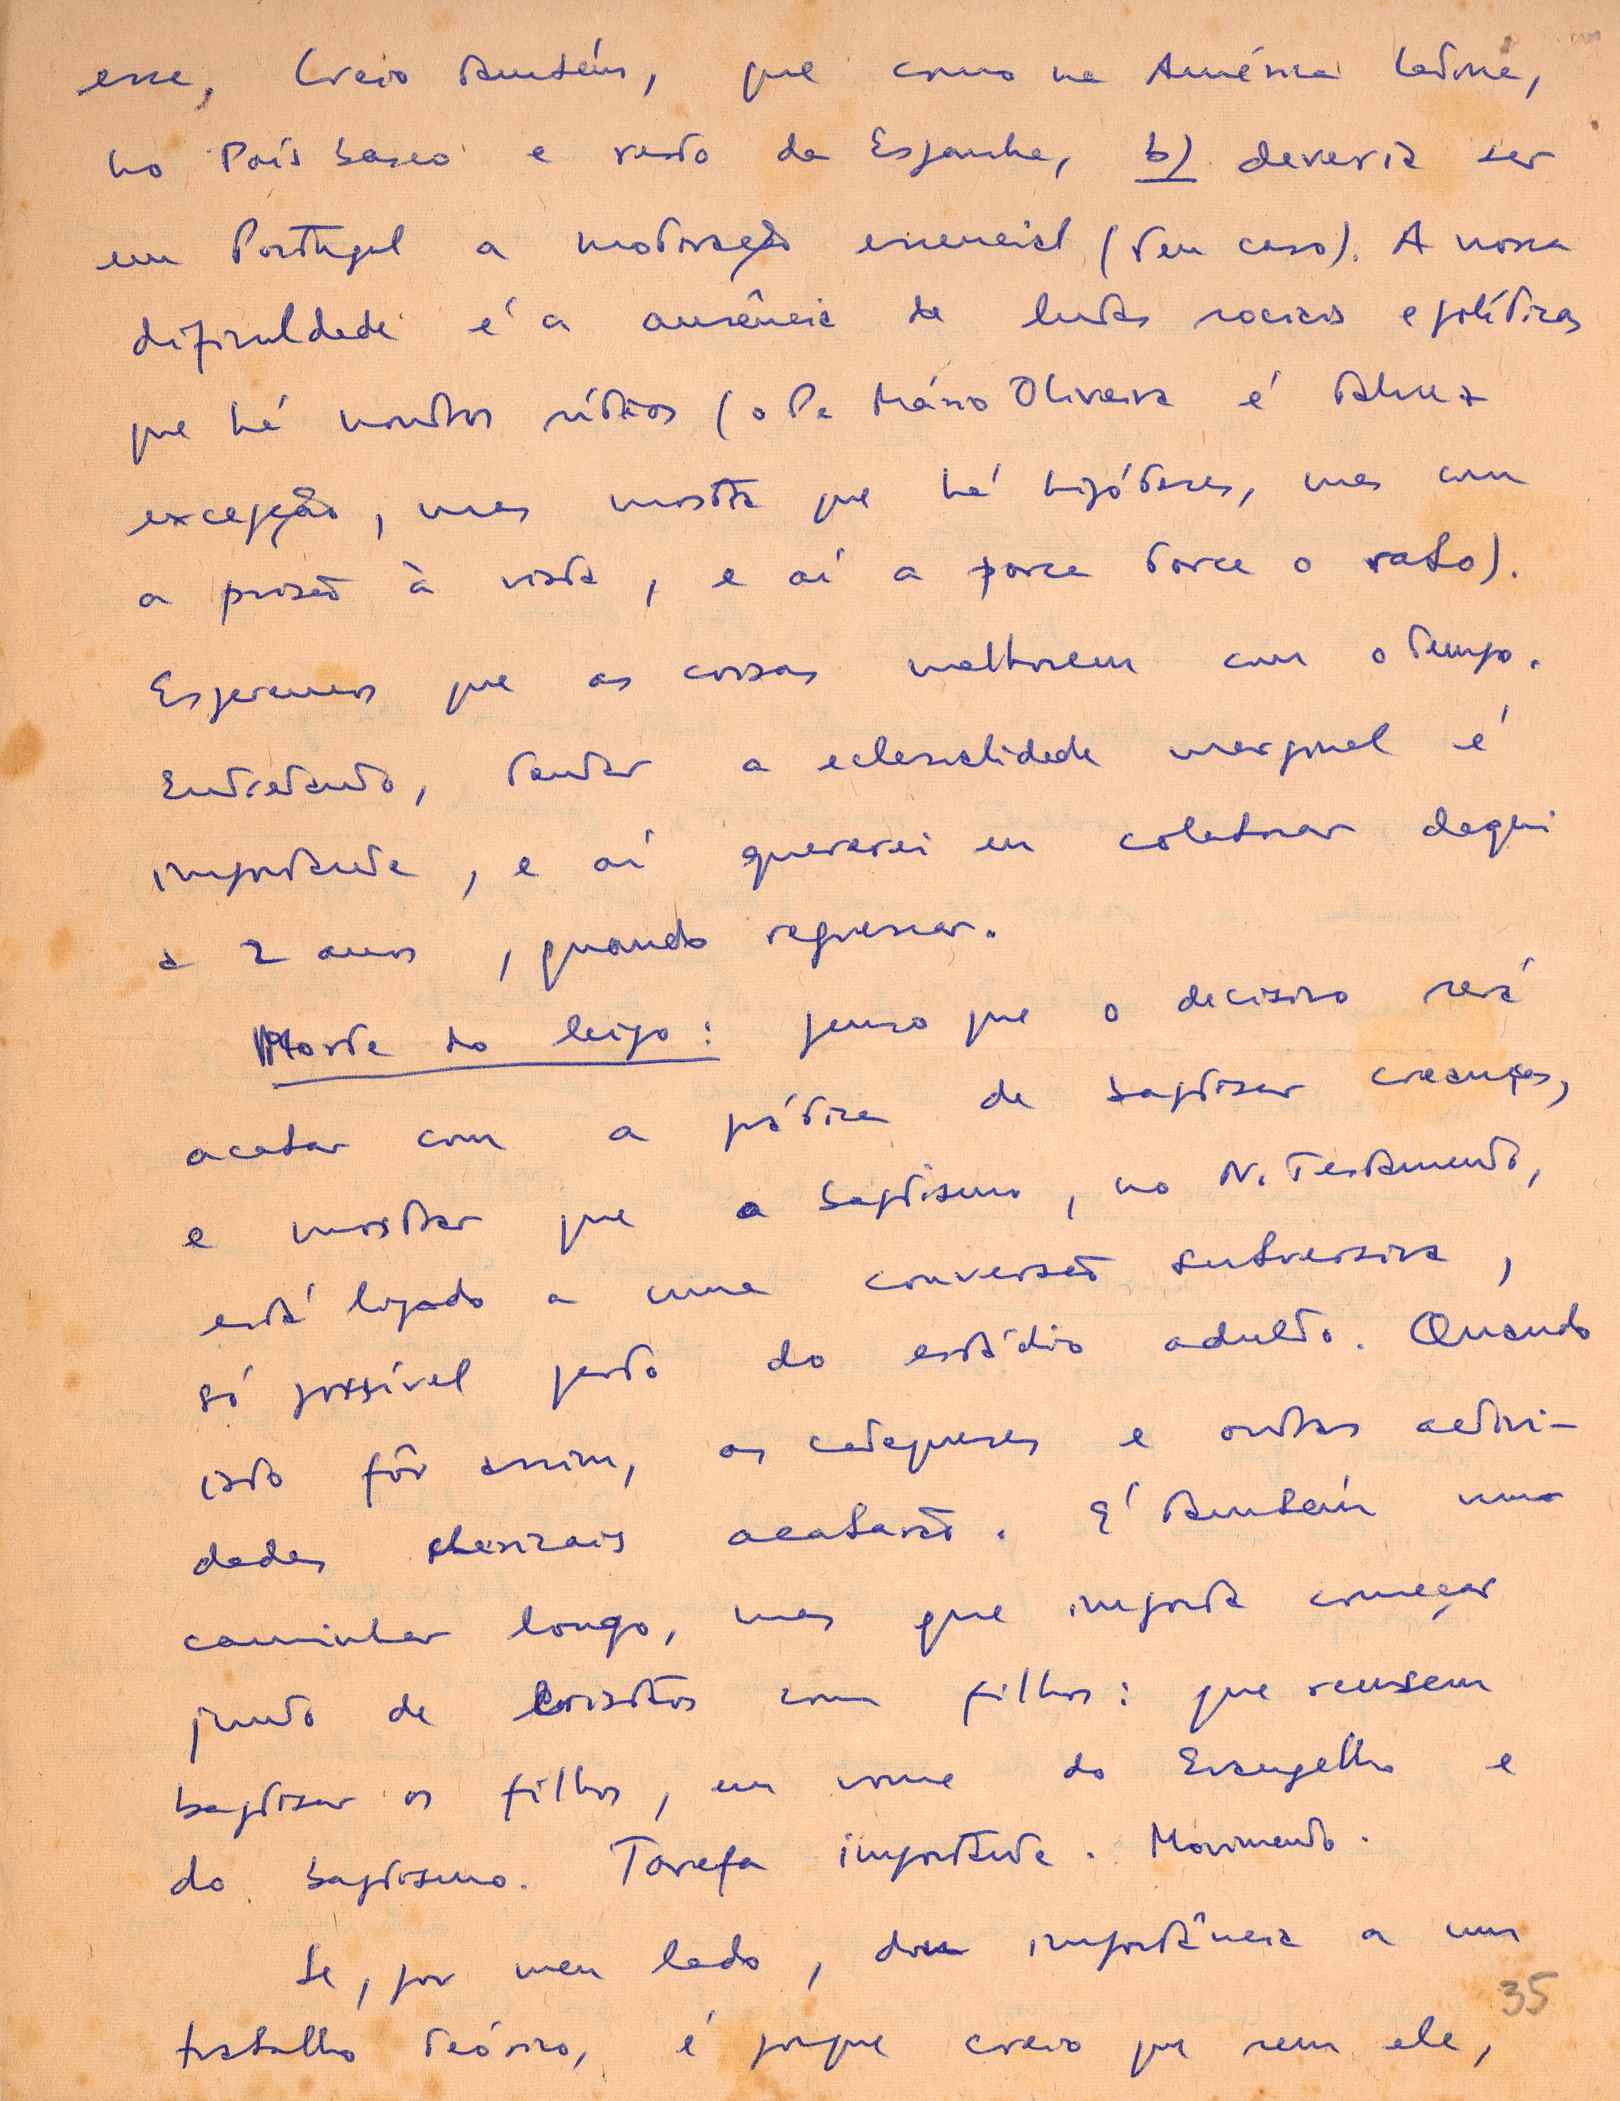 esse, Creio também, que como na América Latina,
no País basco e resto da Espanha, b) deveria ser
em Portugal a motivação essencial (teu caso). A nossa
dificuldade é a ausência de lutas sociais e políticas
que há noutros sítios (o Pe Mário Oliveira é talvez
excepção, mas mostra que há hipóteses, mas com
a prisão à vista, e aí a porca torce o rabo).
Esperemos que as coisas melhorem com o tempo.
Entretanto, tentar a eclesialidade marginal é
importante, e aí quererei eu colaborar daqui
a 2 anos, quando regressar.
Morte do leigo: penso que o decisivo será
acabar com a prática de baptisar crianças,
e mostrar que o baptismo, no N. Testamento,
está ligado a uma conversão subversiva,
só possível perto do estádio adulto. Quando
isto fôr assim, as catequeses e outras activi-
dades clericais acabarão. É também um
caminhar longo, mas que importa começar
junto de cristãos com filhos: que recusem
baptisar os filhos, em nome do Evangelho e
do baptismo. Tarefa importante. Movimento.
Se, por meu lado, dou importância a um
trabalho teórico, é porque creio que sem ele,
35